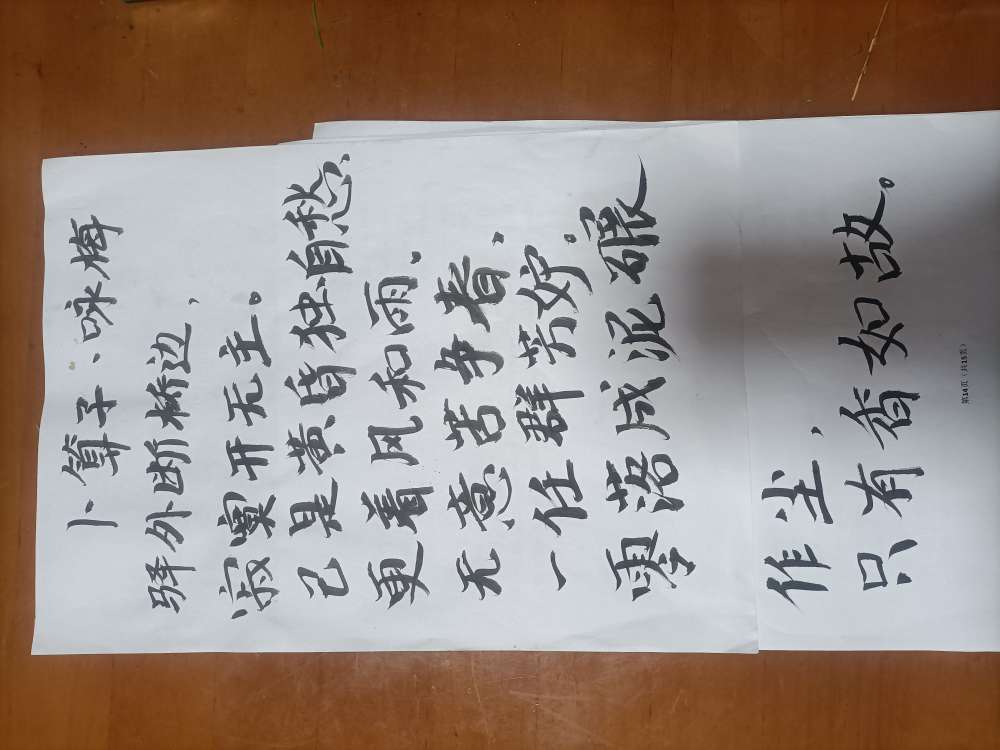 卜算子、咏梅
驿外断桥边，
寂寞开无主。
已是黄昏独自愁、
更着风和雨.
无意苦争春、
一任群芳妒.
零落成泥碾
作尘，
只有香如故。
第14页（共15页）